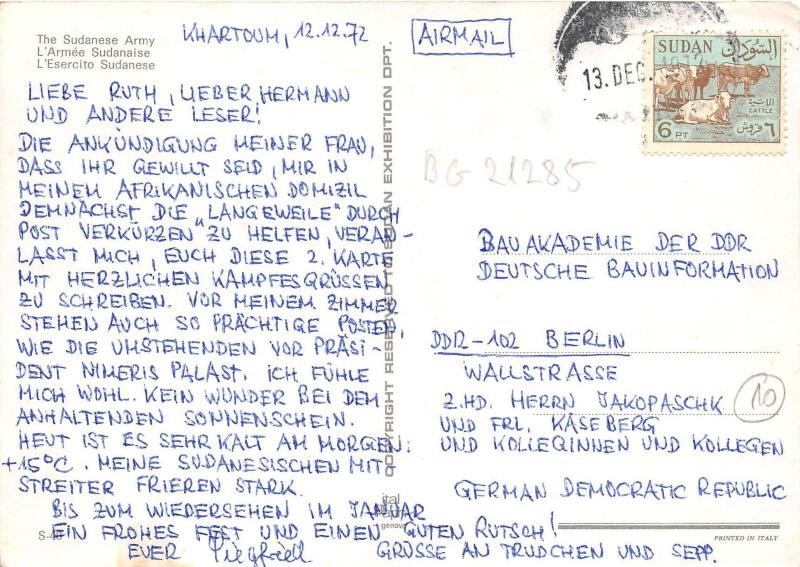 The Sudanese Army
L'Armée Sudanaise
L'Esercito Sudanese
KHARTOUM, 12.12.72
LIEBE RUTH, LIEBER HERMANN
UND ANDERE LESER!
DIE ANKÜNDIGUNG MEINER FRAU,
DASS IHR GEWILLT SEID, MIR IN
MEINEM AFRIKANISCHEN DOMIZIL
DEMNÄCHST DIE „LANGEWEILE" DURCH
POST VERKÜRZEN ZU HELFEN, VERAN-
LASST MICH, EUCH DIESE 2. KARTE
MIT HERZLICHEN KAMPFESGRÜSSEN
ZU SCHREIBEN. VOR MEINEM ZIMMER
STEHEN AUCH SO PRÄCHTIGE POSTEN,
WIE DIE UMSTEHENDEN VOR PRÄSI-
DENT NIMERIS PALAST. ICH FÜHLE
MICH WOHL. KEIN WUNDER BEI DEM
ANHALTENDEN SONNENSCHEIN.
HEUT IST ES SEHR KALT AM MORGEN:
+15°C. MEINE SUDANESISCHEN MIT
STREITER FRIEREN STARK.
BIS ZUM WIEDERSEHEN IM JANUAR
EIN FROHES FEST UND EINEN GUTEN RUTSCH!
EUER Siegfried GRÜSSE AN TRUDCHEN UND SEPP.
S-4
COPYRIGHT RESERVED TO SUDAN EXHIBITION DPT.
ital
genova
AIRMAIL
13. DEC. 1972
SUDAN السودان
الماشية
CATTLE
6 PT ٦ قروش
BG 21285
BAUAKADEMIE DER DDR
DEUTSCHE BAUINFORMATION
DDR-102 BERLIN
WALLSTRASSE
Z.HD. HERRN JAKOPASCHK
UND FRL. KÄSEBERG
UND KOLLEGINNEN UND KOLLEGEN
10
GERMAN DEMOCRATIC REPUBLIC
PRINTED IN ITALY